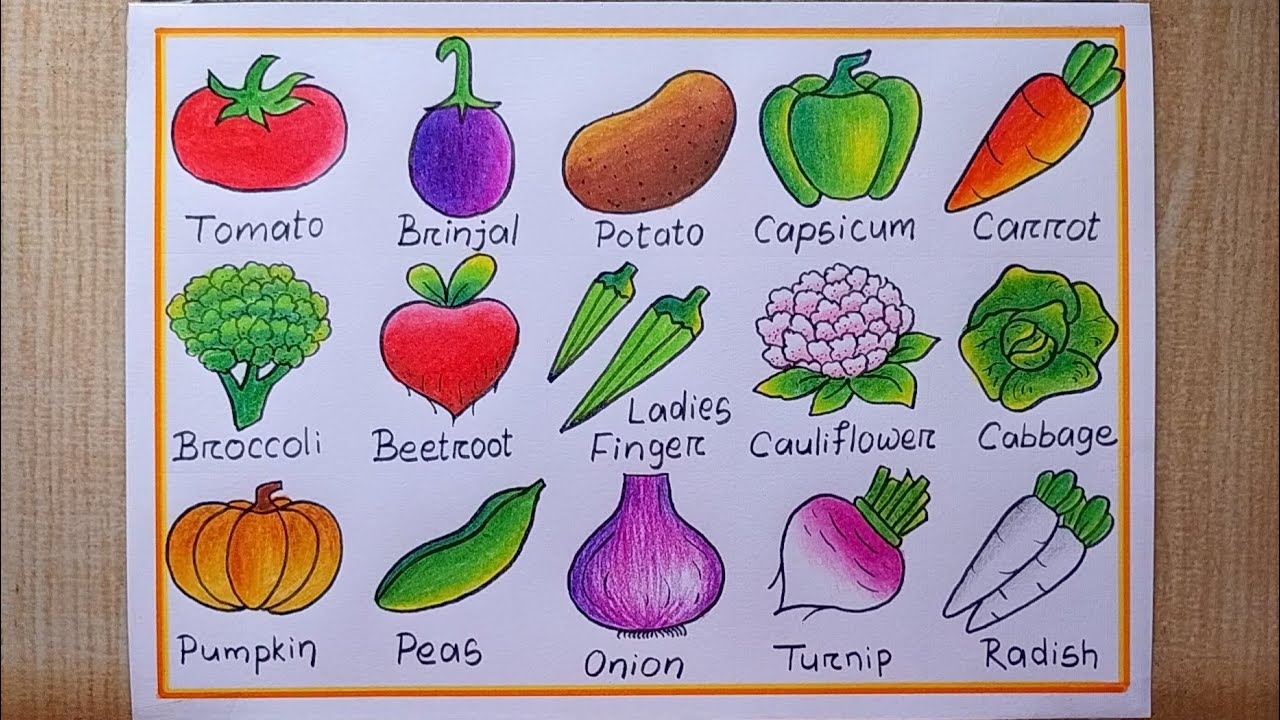 Tomato
Brinjal
Potato
Capsicum
Carrot
Broccoli
Beetroot
Ladies
Finger
Cauliflower
Cabbage
Pumpkin
Peas
Onion
Turnip
Radish